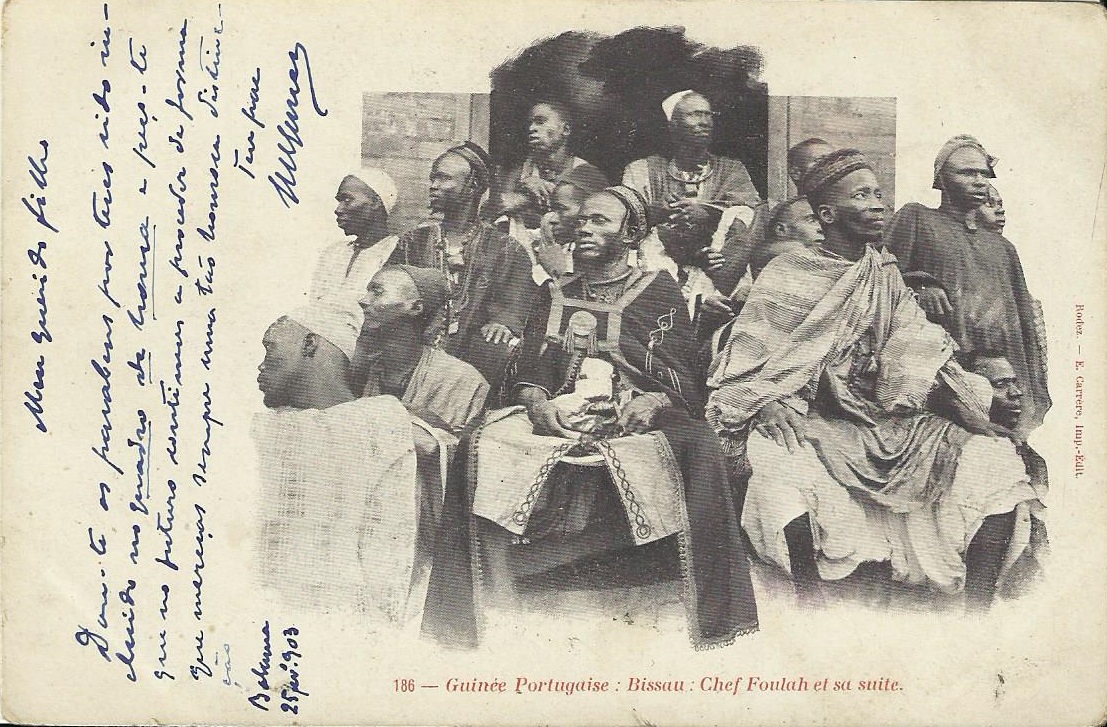 Meu querido filho
Dou-te os parabens por teres sido in-
cluido no quadro de honra e peço-te
que no futuro continues a proceder de forma
que mereças sempre uma tão honrosa distinc-
ção
Teu pae
Bolama
25 903
186 — Guinée Portugaise : Bissau : Chef Foulah et sa suite.
Rodez. — E. Carrère, Imp.-Édit.